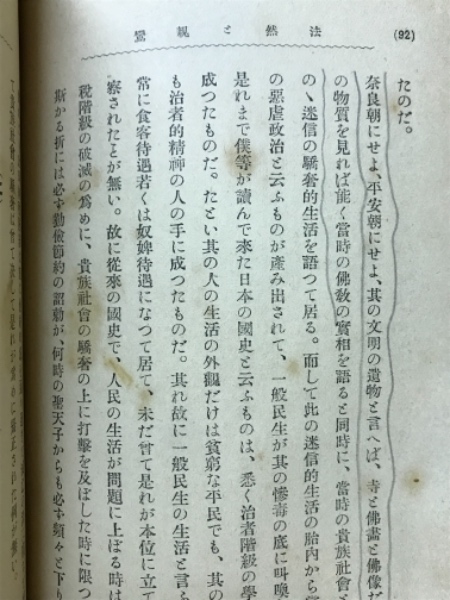 (92)
法然と親鸞
たのだ。
奈良朝にせよ、平安朝にせよ、其の文明の遺物と言へば、寺と佛畫と佛像だ
の物質を見れば能く當時の佛敎の實相を語ると同時に、當時の貴族社會
の迷信の驕奢的生活を語つて居る。而して此の迷信的生活の胎內から
の惡虐政治と云ふものが產み出されて、一般民生が其の慘毒の底に叫喚
是れまで僕等が讀んで來た日本の國史と云ふものは、悉く治者階級の學
成つたものだ。たとい其の人の生活の外觀だけは貧窮な平民でも、其の
も治者的精神の人の手に成つたものだ。其れ故に一般民生の生活と言ふ
常に食客待遇若くは奴婢待遇になつて居て、未だ曾て是れが本位に立て
察されたとが無い。故に從來の國史で、人民の生活が問題に上ぼる時は
稅階級の破滅の爲めに、貴族社會の驕奢の上に打擊を及ぼした時に限つ
斯かる折には必ず勤儉節約の詔勅が、何時の聖天子からも必ず頻々と下り